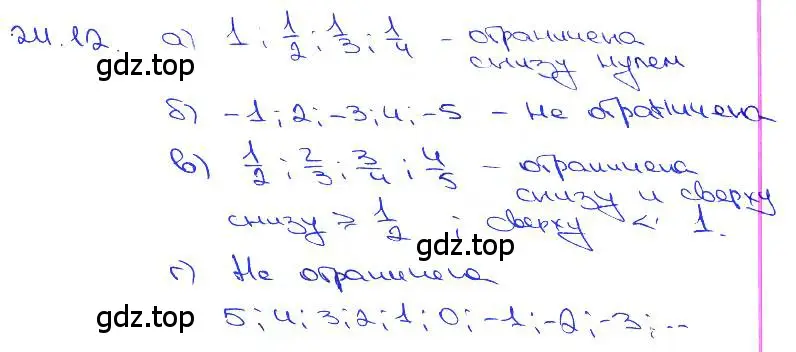 24.12. а) 1; 1/2; 1/3; 1/4 - ограничена
снизу нулем
gdz.top
б) -1; 2; -3; 4; -5 - не ограничена
в) 1/2; 2/3; 3/4; 4/5 - ограничена
снизу и сверху
снизу ≥ 1/2; сверху < 1.
gdz.top
г) Не ограничена
5; 4; 3; 2; 1; 0; -1; -2; -3; ...
gdz.top